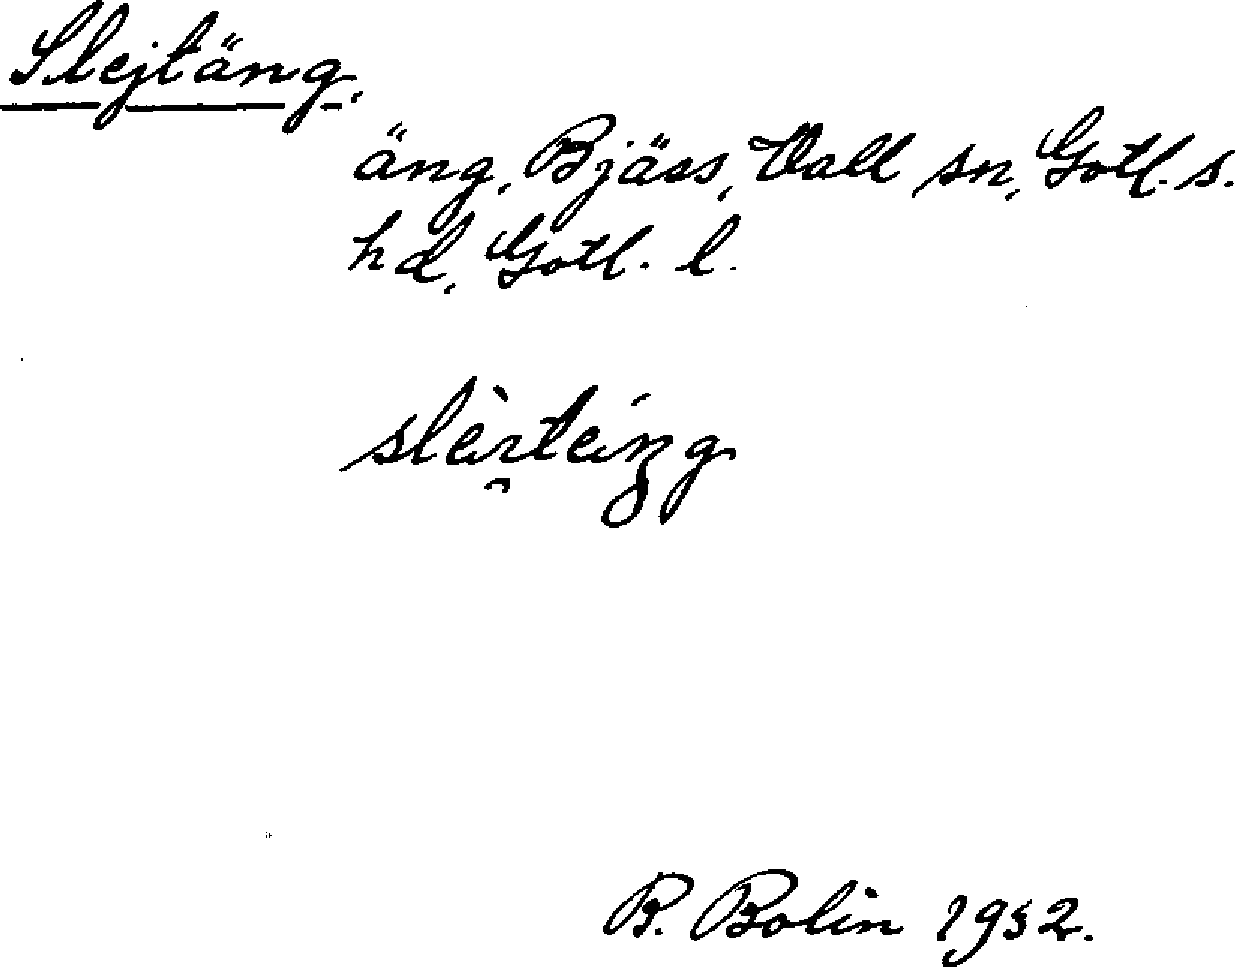 Slejtäng,
äng, Bjäss, Vall sn, Gotl. s.
hd, Gotl. l.
R. Bolin 1952.